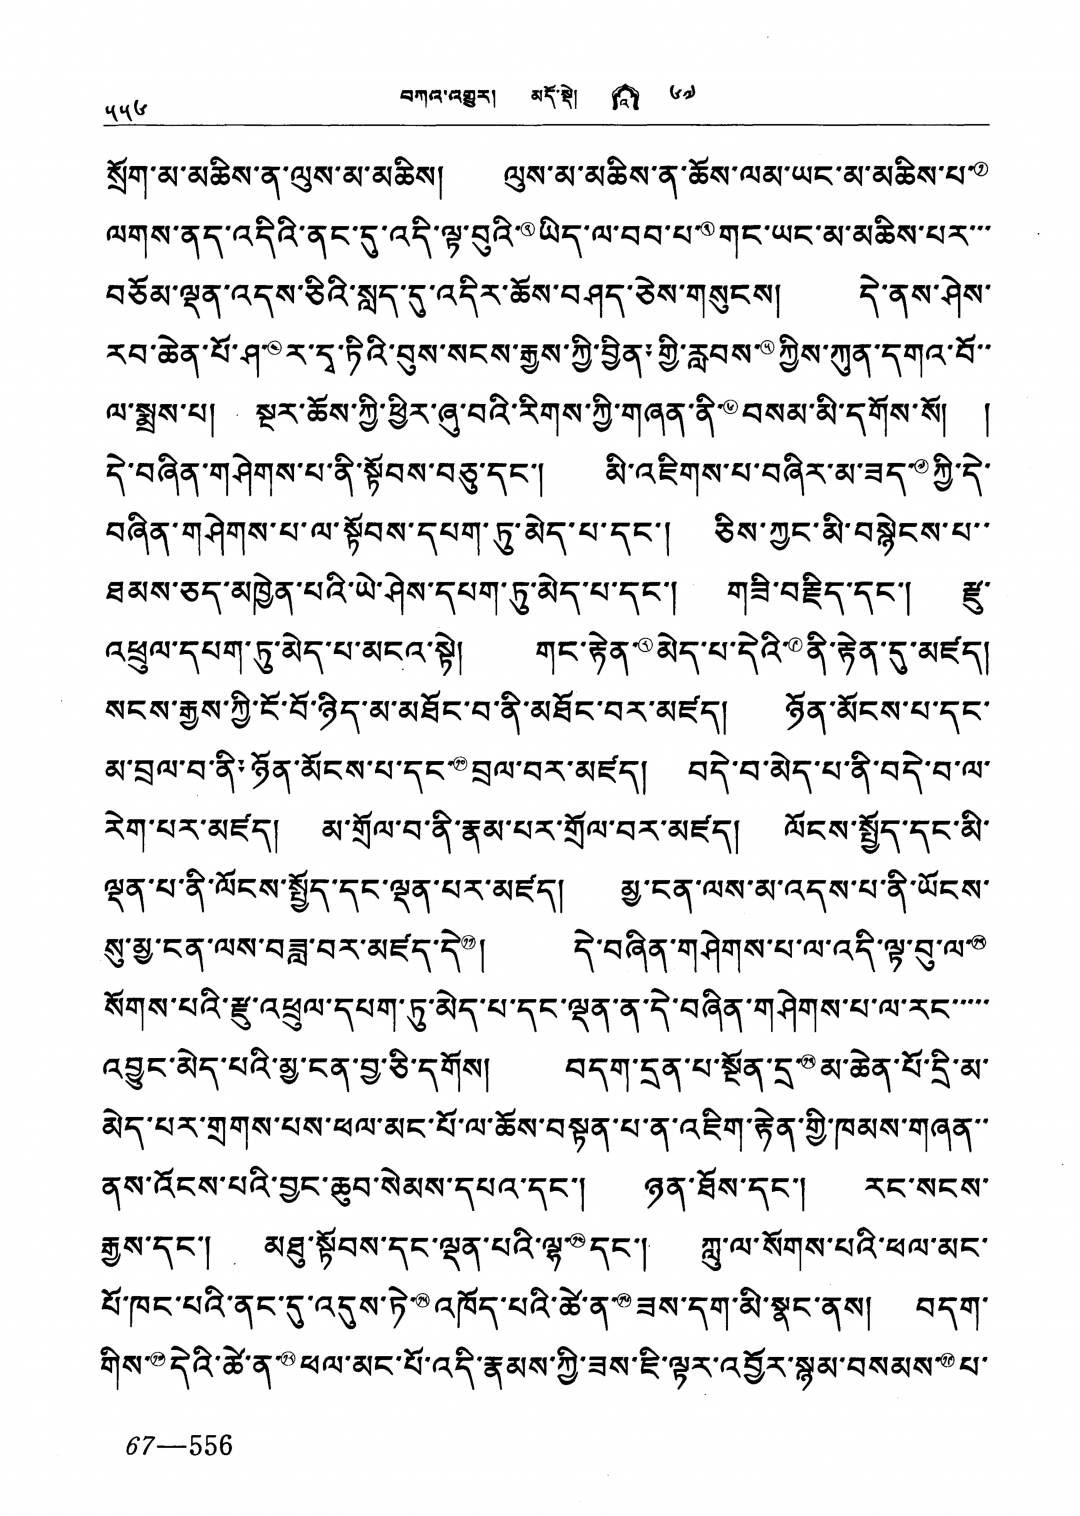 ༥༥༦ བཀའ་འགྱུར། མདོ་སྡེ། འ ༦༧
སྲོག་མ་མཆིས་ན་ལུས་མ་མཆིས། ལུས་མ་མཆིས་ན་ཆོས་ལམ་ཡང་མ་མཆིས་པ་①
ལགས་ནད་འདིའི་ནང་དུ་འདི་ལྟ་བུའི་②ཡིད་ལ་བབ་པ་③གང་ཡང་མ་མཆིས་པར་་་
བཅོམ་ལྡན་འདས་ཅིའི་སླད་དུ་འདིར་ཆོས་བཤད་ཅེས་གསུངས། དེ་ནས་ཤེས་
རབ་ཆེན་པོ་ཤ་④ར་དྭ་ཏིའི་བུས་སངས་རྒྱས་ཀྱི་བྱིན་གྱི་རླབས་⑤ཀྱིས་ཀུན་དགའ་བོ་་
ལ་སྨྲས་པ། སྔར་ཆོས་ཀྱི་ཕྱིར་ཞུ་བའི་རིགས་ཀྱི་གཞན་ནི་⑥བསམ་མི་དགོས་སོ། །
དེ་བཞིན་གཤེགས་པ་ནི་སྟོབས་བཅུ་དང་། མི་འཇིགས་པ་བཞིར་མ་ཟད་⑦ཀྱི་དེ་
བཞིན་གཤེགས་པ་ལ་སྟོབས་དཔག་ཏུ་མེད་པ་དང་། ཅིས་ཀྱང་མི་བསྙེངས་པ་་
ཐམས་ཅད་མཁྱེན་པའི་ཡེ་ཤེས་དཔག་ཏུ་མེད་པ་དང་། གཟི་བརྗིད་དང་། རྫུ་
འཕྲུལ་དཔག་ཏུ་མེད་པ་མངའ་སྟེ། གང་རྟེན་⑧མེད་པ་དེའི་⑨ནི་རྟེན་དུ་མཛད།
སངས་རྒྱས་ཀྱི་ངོ་བོ་ཉིད་མ་མཐོང་བ་ནི་མཐོང་བར་མཛད། ཉོན་མོངས་པ་དང་
མ་བྲལ་བ་ནི་ཉོན་མོངས་པ་དང་⑩བྲལ་བར་མཛད། བདེ་བ་མེད་པ་ནི་བདེ་བ་ལ་
རེག་པར་མཛད། མ་གྲོལ་བ་ནི་རྣམ་པར་གྲོལ་བར་མཛད། ལོངས་སྤྱོད་དང་མི་
ལྡན་པ་ནི་ལོངས་སྤྱོད་དང་ལྡན་པར་མཛད། མྱ་ངན་ལས་མ་འདས་པ་ནི་ཡོངས་
སུ་མྱ་ངན་ལས་བཟླ་བར་མཛད་དེ⑪། དེ་བཞིན་གཤེགས་པ་ལ་འདི་ལྟ་བུ་ལ་⑫
སོགས་པའི་རྫུ་འཕྲུལ་དཔག་ཏུ་མེད་པ་དང་ལྡན་ན་དེ་བཞིན་གཤེགས་པ་ལ་རང་་་་་
འབྱུང་མེད་པའི་མྱ་ངན་བྱ་ཅི་དགོས། བདག་དྲན་པ་སྔོན་དྲ་⑬མ་ཆེན་པོ་དྲི་མ་
མེད་པར་གྲགས་པས་ཕལ་མང་པོ་ལ་ཆོས་བསྟན་པ་ན་འཇིག་རྟེན་གྱི་ཁམས་གཞན་་
ནས་འོངས་པའི་བྱང་ཆུབ་སེམས་དཔའ་དང་། ཉན་ཐོས་དང་། རང་སངས་
རྒྱས་དང་། མཐུ་སྟོབས་དང་ལྡན་པའི་ལྷ་⑭དང་། ཀླུ་ལ་སོགས་པའི་ཕལ་མང་
པོ་ཁང་པའི་ནང་དུ་འདུས་ཏེ་⑮འཁོད་པའི་ཚེ་ན་⑯ཟས་དག་མི་སྣང་ནས། བདག་
གིས་⑰དེའི་ཚེ་ན་⑱ཕལ་མང་པོ་འདི་རྣམས་ཀྱི་ཟས་ཇི་ལྟར་འབྱོར་སྙམ་བསམས་⑲པ་
67—556